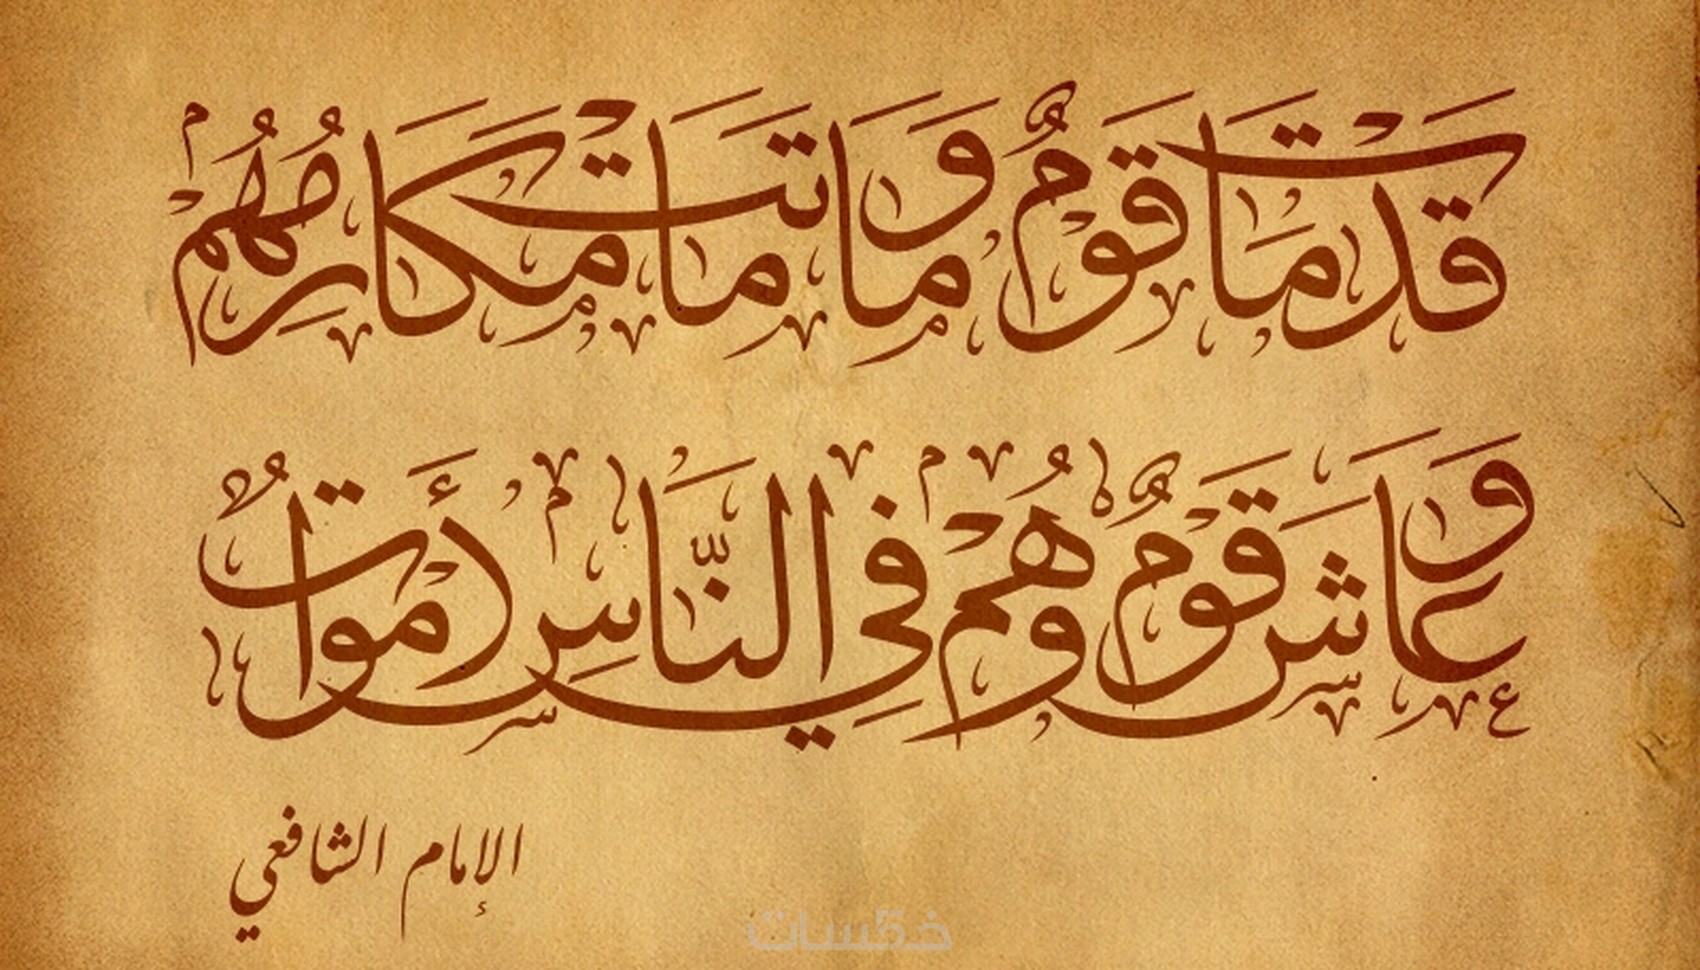 قَدْ مَاتَ قَوْمٌ وَمَا مَاتَتْ مَكَارِمُهُمْ
وَعَاشَ قَوْمٌ وَهُمْ فِي النَّاسِ أَمْوَاتُ
الإمام الشافعي
خمسات